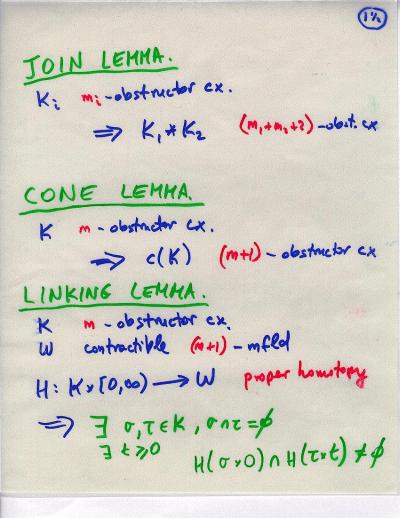 1½
JOIN LEMMA.
Kᵢ mᵢ-obstructor cx.
⇒ K₁ * K₂ (m₁+m₂+2)-obst. cx
CONE LEMMA.
K m-obstructor cx.
⇒ c(K) (m+1)-obstructor cx
LINKING LEMMA.
K m-obstructor cx.
W contractible (m+1)-mfld
H: K×[0,∞) → W proper homotopy
⇒ ∃ σ,τ∈K, σ∩τ=∅
∃ t≥0 H(σ×0) ∩ H(τ×t) ≠ ∅